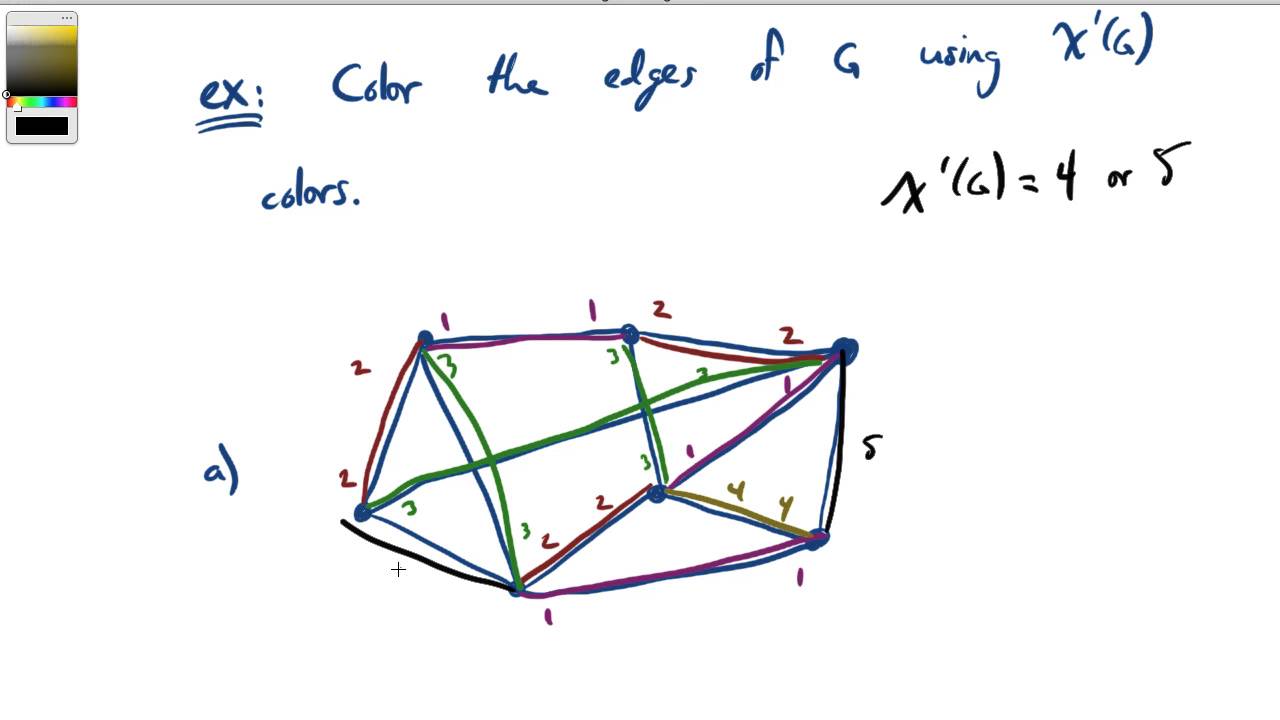 ex: Color the edges of G using χ'(G)
colors.
χ'(G) = 4 or 5
1 1 2
2 3 3 3 2
1
a) 2 3 3 1 5
2 4 4
3 2
1 1